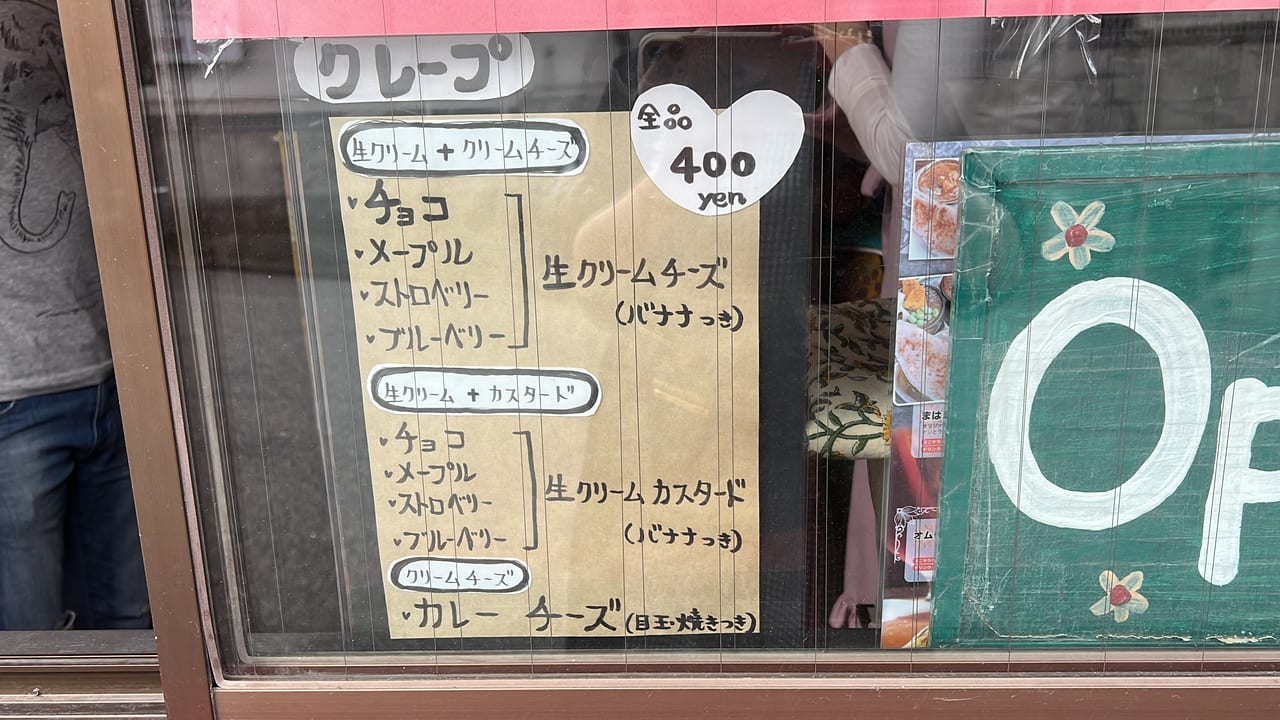 クレープ
全品
400
yen
生クリーム + クリームチーズ
・チョコ
・メープル
・ストロベリー
・ブルーベリー
生クリームチーズ
(バナナつき)
生クリーム + カスタード
・チョコ
・メープル
・ストロベリー
・ブルーベリー
生クリームカスタード
(バナナつき)
クリームチーズ
・カレーチーズ(目玉焼きつき)
Op